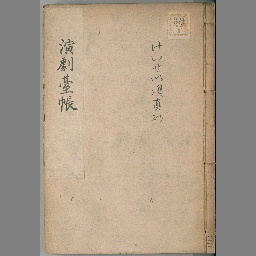 演劇臺帳
けいせい浜真砂